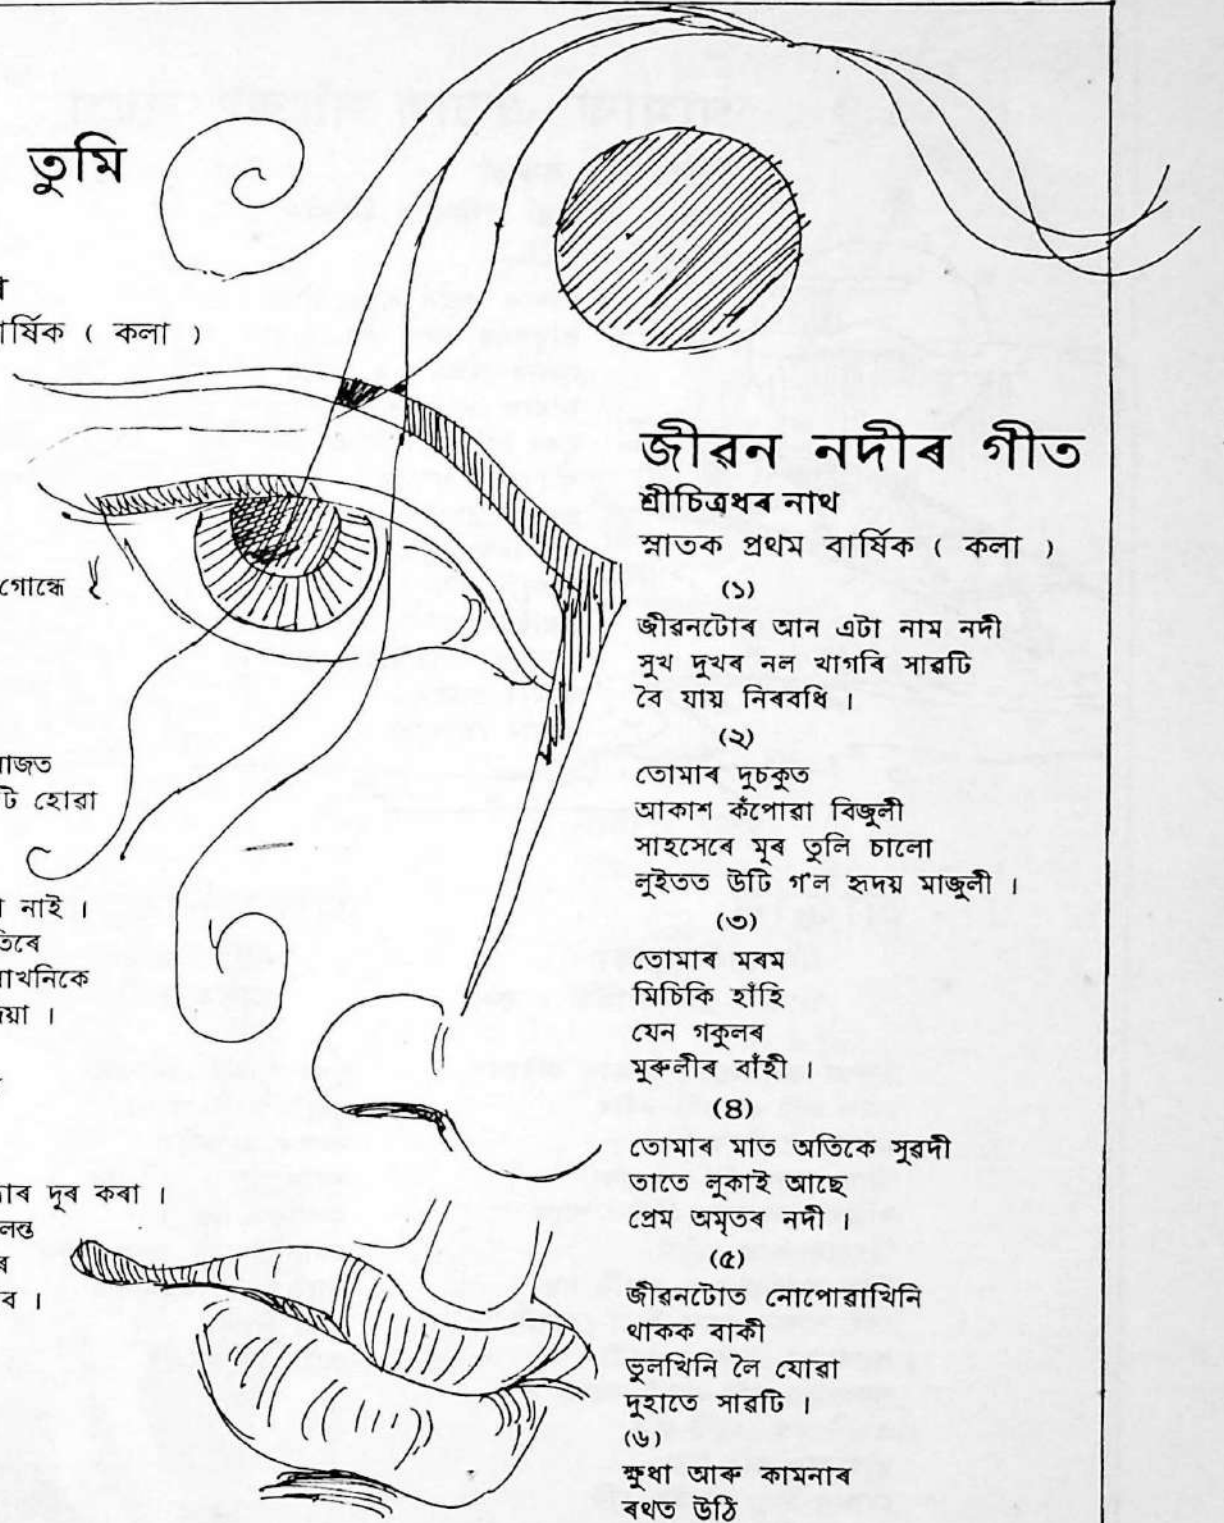 তুমি
( কলা )
গোন্ধে
হোৱা
নাই ।
দূৰ কৰা ।
জীৱন নদীৰ গীত
শ্ৰীচিত্ৰধৰ নাথ
স্নাতক প্ৰথম বাৰ্ষিক ( কলা )
(১)
জীৱনটোৰ আন এটা নাম নদী
সুখ দুখৰ নল খাগৰি সাৱটি
বৈ যায় নিৰবধি ।
(২)
তোমাৰ দুচকুত
আকাশ কঁপোৱা বিজুলী
সাহসেৰে মূৰ তুলি চালো
লুইতত উটি গ'ল হৃদয় মাজুলী ।
(৩)
তোমাৰ মৰম
মিচিকি হাঁহি
যেন গকুলৰ
মুৰুলীৰ বাঁহী ।
(৪)
তোমাৰ মাত অতিকে সুৱদী
তাতে লুকাই আছে
প্ৰেম অমৃতৰ নদী ।
(৫)
জীৱনটোত নোপোৱাখিনি
থাকক বাকী
ভুলখিনি লৈ যোৱা
দুহাতে সাৱটি ।
(৬)
ক্ষুধা আৰু কামনাৰ
ৰথত উঠি